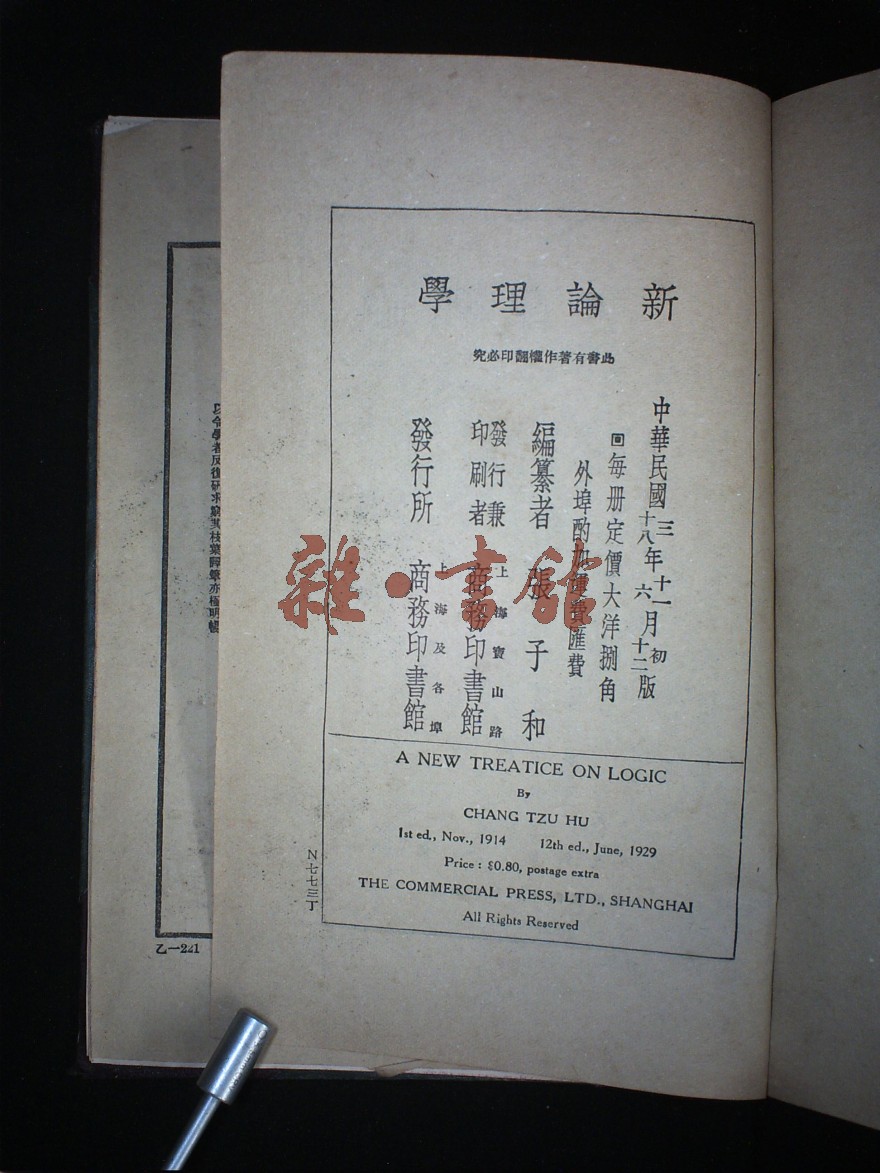 新論理學
此書有著作權翻印必究
中華民國三年十一月初版
十八年六月十二版
回每册定價大洋捌角
外埠酌加運費匯費
編纂者 張子和
發行兼印刷者 上海寶山路 商務印書館
發行所 上海及各埠 商務印書館
A NEW TREATICE ON LOGIC
By
CHANG TZU HU
1st ed., Nov., 1914 12th ed., June, 1929
Price : $0.80, postage extra
THE COMMERCIAL PRESS, LTD., SHANGHAI
All Rights Reserved
N七七三丁
乙一221
雜·書館